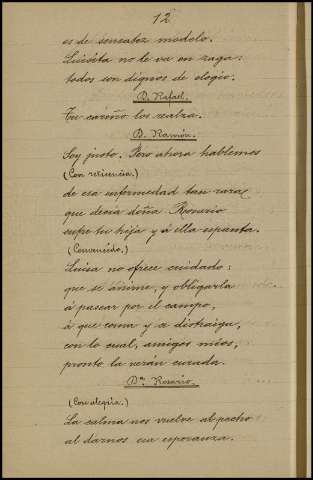 12
es de sensatez modelo.
Luisita no le va en zaga:
todos son dignos de elogio.
D. Rafael.
Tu cariño los realza.
D. Ramón.
Soy justo. Pero ahora hablemos
(Con reticencia.)
de esa enfermedad tan rara
que decía doña Rosario
sufre tu hija y á ella espanta.
(Convencido.)
Luisa no ofrece cuidado:
que se anime, y obligarla
á pasear por el campo,
á que coma y a distraiga,
con lo cual, amigos míos,
pronto la verán curada.
Dª Rosario.
(Con alegría.)
La calma nos vuelve al pecho
al darnos esa esperanza.